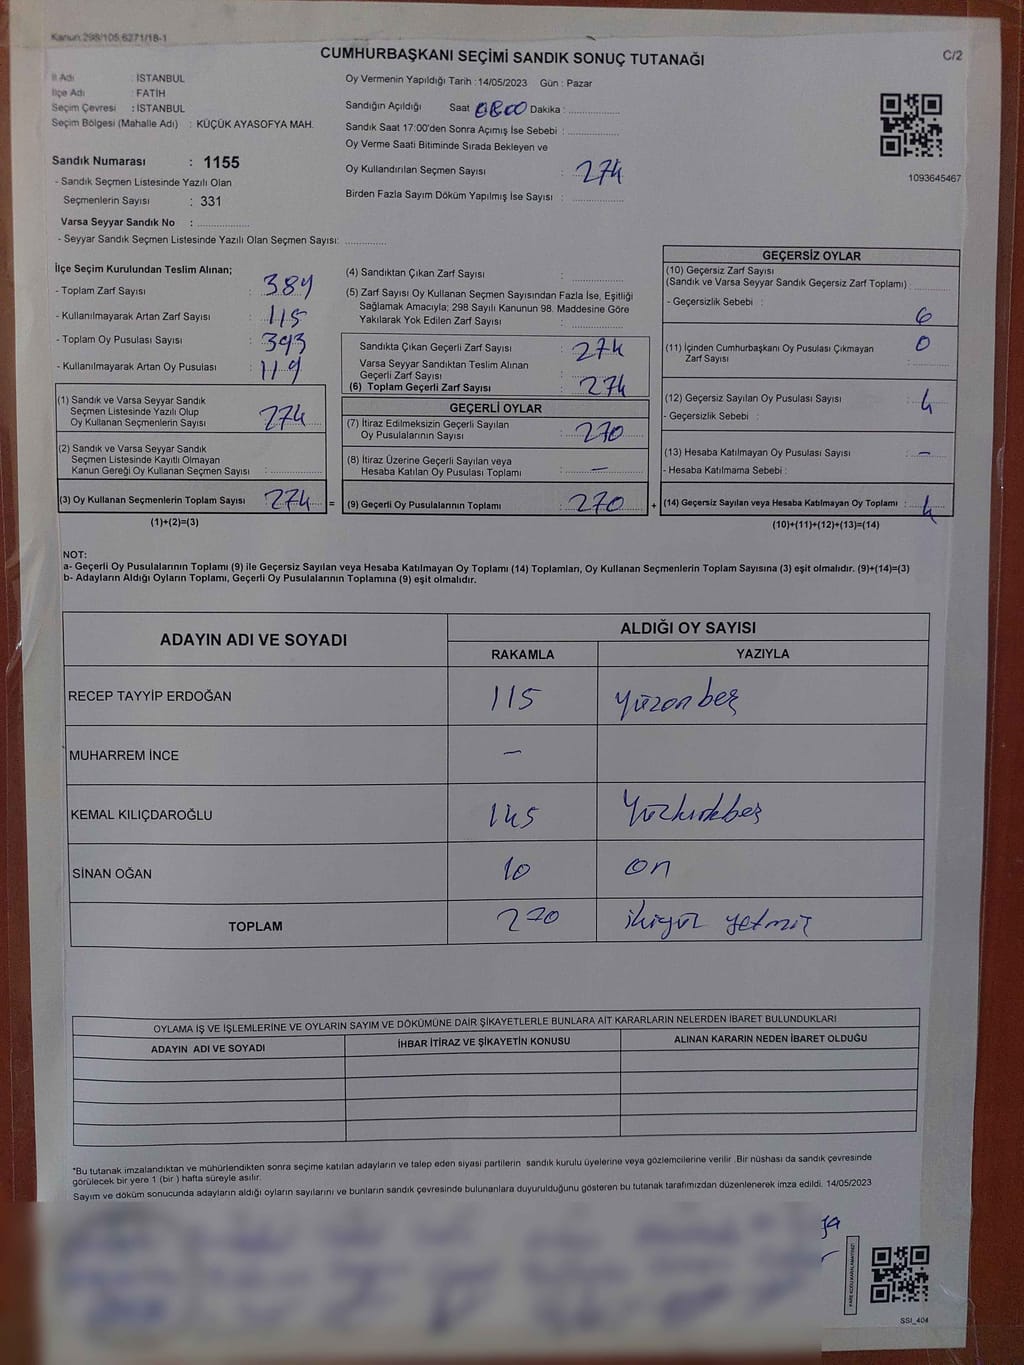 Kanun:298/105,6271/18-1
CUMHURBAŞKANI SEÇİMİ SANDIK SONUÇ TUTANAĞI
C/2
İl Adı : İSTANBUL
İlçe Adı : FATİH
Seçim Çevresi : İSTANBUL
Seçim Bölgesi (Mahalle Adı) : KÜÇÜK AYASOFYA MAH.
Sandık Numarası : 1155
- Sandık Seçmen Listesinde Yazılı Olan
Seçmenlerin Sayısı : 331
Varsa Seyyar Sandık No : ................
- Seyyar Sandık Seçmen Listesinde Yazılı Olan Seçmen Sayısı: ............
Oy Vermenin Yapıldığı Tarih : 14/05/2023 Gün : Pazar
Sandığın Açıldığı Saat 0800 Dakika : ................
Sandık Saat 17:00'den Sonra Açımış İse Sebebi : ................
Oy Verme Saati Bitiminde Sırada Bekleyen ve
Oy Kullandırılan Seçmen Sayısı : 274
Birden Fazla Sayım Döküm Yapılmış İse Sayısı : ................
1093645467
İlçe Seçim Kurulundan Teslim Alınan;
- Toplam Zarf Sayısı : 389
- Kullanılmayarak Artan Zarf Sayısı : 115
- Toplam Oy Pusulası Sayısı : 393
- Kullanılmayarak Artan Oy Pusulası : 119
(1) Sandık ve Varsa Seyyar Sandık
Seçmen Listesinde Yazılı Olup
Oy Kullanan Seçmenlerin Sayısı : 274
(2) Sandık ve Varsa Seyyar Sandık
Seçmen Listesinde Kayıtlı Olmayan
Kanun Gereği Oy Kullanan Seçmen Sayısı : ................
(3) Oy Kullanan Seçmenlerin Toplam Sayısı : 274 =
(1)+(2)=(3)
(4) Sandıktan Çıkan Zarf Sayısı : ................
(5) Zarf Sayısı Oy Kullanan Seçmen Sayısından Fazla İse, Eşitliği
Sağlamak Amacıyla; 298 Sayılı Kanunun 98. Maddesine Göre
Yakılarak Yok Edilen Zarf Sayısı : ................
Sandıkta Çıkan Geçerli Zarf Sayısı : 274
Varsa Seyyar Sandıktan Teslim Alınan
Geçerli Zarf Sayısı :
(6) Toplam Geçerli Zarf Sayısı : 274
GEÇERLİ OYLAR
(7) İtiraz Edilmeksizin Geçerli Sayılan
Oy Pusulalarının Sayısı : 270
(8) İtiraz Üzerine Geçerli Sayılan veya
Hesaba Katılan Oy Pusulası Toplamı : —
(9) Geçerli Oy Pusulalarının Toplamı : 270 +
GEÇERSİZ OYLAR
(10) Geçersiz Zarf Sayısı
(Sandık ve Varsa Seyyar Sandık Geçersiz Zarf Toplamı) : ................
- Geçersizlik Sebebi :
(11) İçinden Cumhurbaşkanı Oy Pusulası Çıkmayan 0
Zarf Sayısı : ................
(12) Geçersiz Sayılan Oy Pusulası Sayısı : 4
- Geçersizlik Sebebi :
(13) Hesaba Katılmayan Oy Pusulası Sayısı : —
- Hesaba Katılmama Sebebi :
(14) Geçersiz Sayılan veya Hesaba Katılmayan Oy Toplamı : 4
(10)+(11)+(12)+(13)=(14)
NOT:
a- Geçerli Oy Pusulalarının Toplamı (9) ile Geçersiz Sayılan veya Hesaba Katılmayan Oy Toplamı (14) Toplamları, Oy Kullanan Seçmenlerin Toplam Sayısına (3) eşit olmalıdır. (9)+(14)=(3)
b- Adayların Aldığı Oyların Toplamı, Geçerli Oy Pusulalarının Toplamına (9) eşit olmalıdır.
ADAYIN ADI VE SOYADI
ALDIĞI OY SAYISI
RAKAMLA YAZIYLA
RECEP TAYYİP ERDOĞAN 115 yüzonbeş
MUHARREM İNCE —
KEMAL KILIÇDAROĞLU 145 Yüzkırkbeş
SİNAN OĞAN 10 on
TOPLAM 270 ikiyüz yetmiş
OYLAMA İŞ VE İŞLEMLERİNE VE OYLARIN SAYIM VE DÖKÜMÜNE DAİR ŞİKAYETLERLE BUNLARA AİT KARARLARIN NELERDEN İBARET BULUNDUKLARI
ADAYIN ADI VE SOYADI İHBAR İTİRAZ VE ŞİKAYETİN KONUSU ALINAN KARARIN NEDEN İBARET OLDUĞU
*Bu tutanak imzalandıktan ve mühürlendikten sonra seçime katılan adayların ve talep eden siyasi partilerin sandık kurulu üyelerine veya gözlemcilerine verilir .Bir nüshası da sandık çevresinde
görülecek bir yere 1 (bir ) hafta süreyle asılır.
Sayım ve döküm sonucunda adayların aldığı oyların sayılarını ve bunların sandık çevresinde bulunanlara duyurulduğunu gösteren bu tutanak tarafımızdan düzenlenerek imza edildi. 14/05/2023
KARE KODU KARALAMAYINIZ!
SSI_404